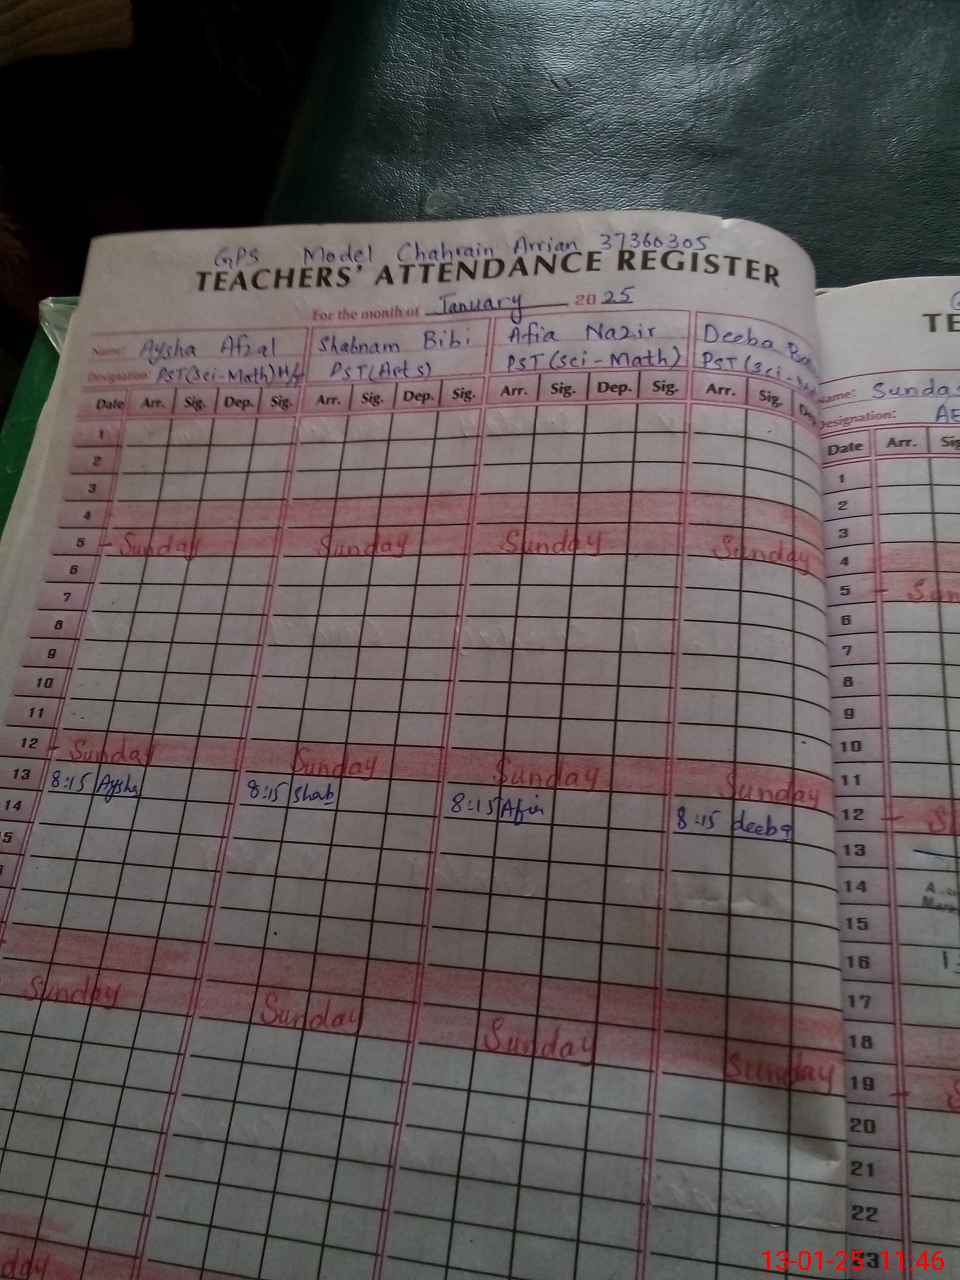 GPS Model Chahrain Arrian 37360305
TEACHERS' ATTENDANCE REGISTER
For the month of January 2025
Name: Aysha Afzal Shabnam Bibi Afia Nazir Deeba
Designation: PST(Sci-Math) H/t PST(Arts) PST(Sci-Math) PST(Sci-
Date Arr. Sig. Dep. Sig. Arr. Sig. Dep. Sig. Arr. Sig. Dep. Sig. Arr. Sig.
1
2
3
4
5 - Sunday Sunday Sunday Sunday
6
7
8
9
10
11
12 - Sunday Sunday Sunday Sunday
13 8:15 Aysha 8:15 Shab 8:15 Afia 8:15 deeba
14
Sunday Sunday Sunday Sunday
TE
Name: Sunda
Designation: AE
Date Arr. Sig
1
2
3
4
5 - Sun
6
7
8
9
10
11
12 - S
13
14
15
16
17
18
19 - S
20
21
22
13-01-25 11:46